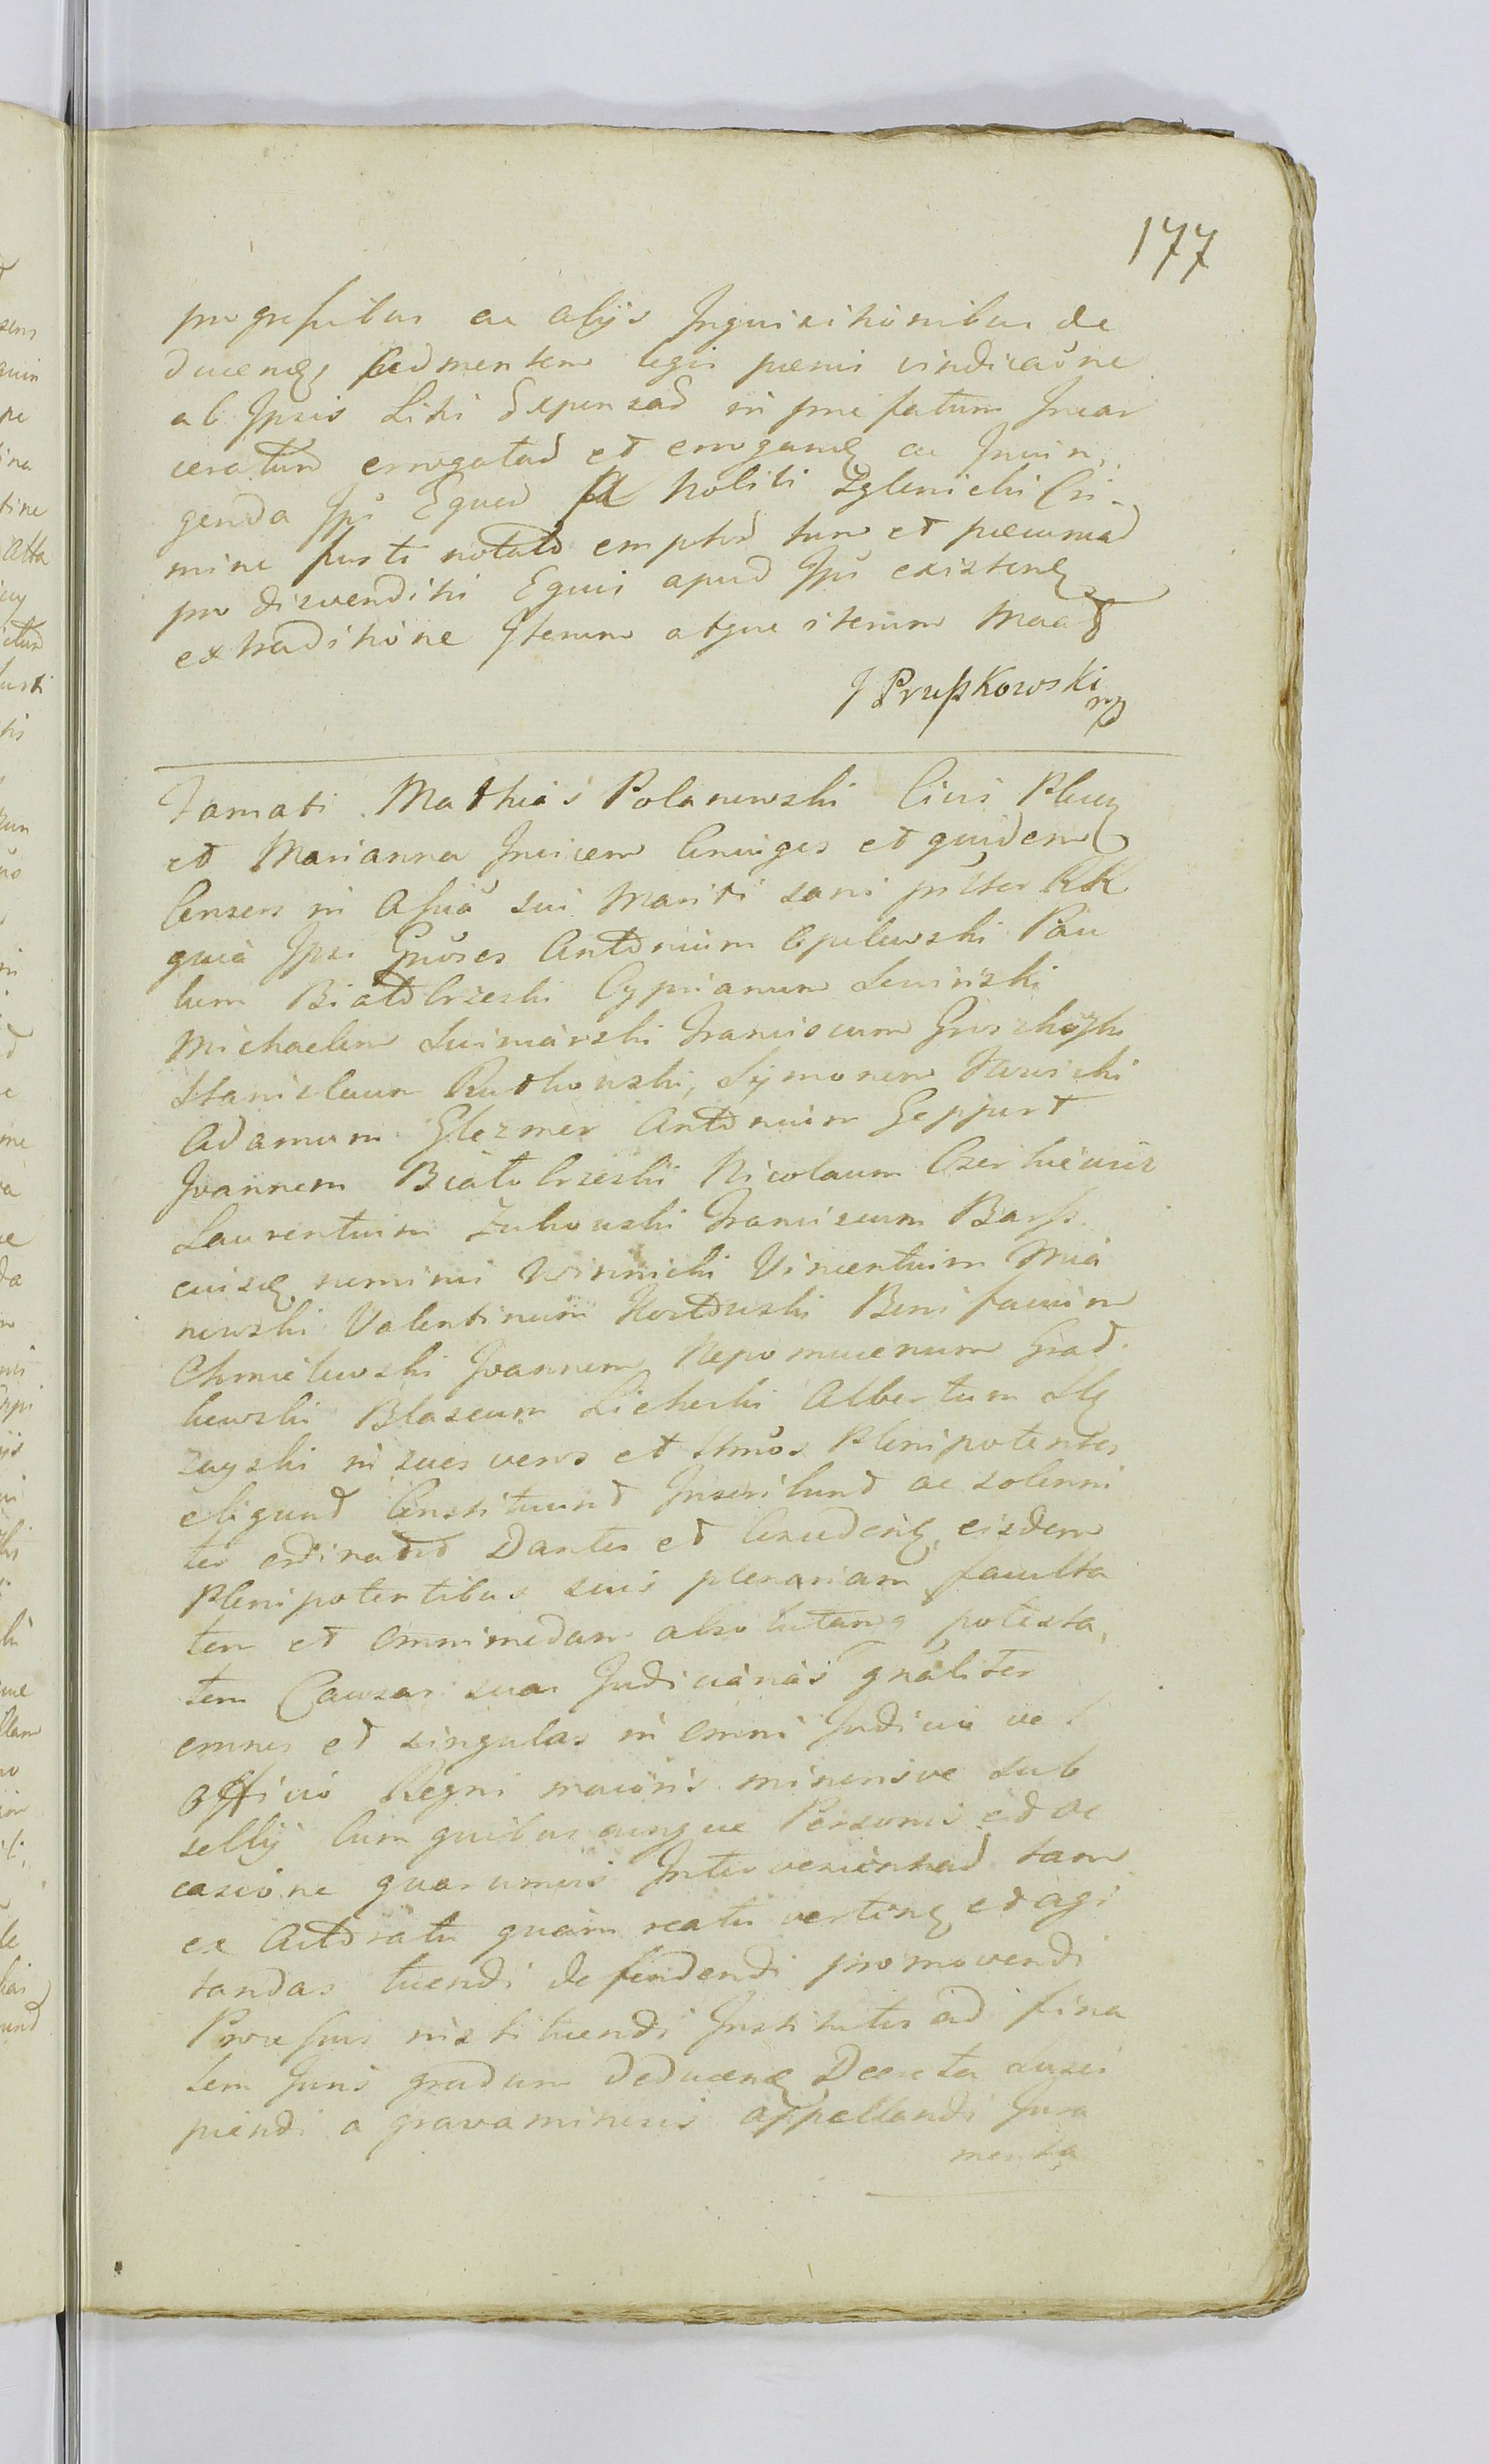 177
progressibus ac alijs Inquisitionibus de
ducend ad mentem legis poenis vindicaõne
ab Ipsis Litis Expensad in prae fatum Incar
ceratum errogatad et erogand ac Iniun,,
genda Ipõ Equed A Noliti Zglenicki Cri-
mine furti notato emptor tum et pecuniad
pro disvenditi Equi apud Ipõ existend
extraditione Iterum atque iterum Maad
J Prusskowski
mp
Famati Mathias Polanowski Civis Ploc
et Marianna Invicem Coniuges et quidem
Consors in Assiã sui Mariti sani pñter RR
quia Ipsi Gñoses Antonium Opulewski Pau
lum Białobrzeski Cyprianum Lewinski
Michaelem Swiniarski Franciscum
Stanislaum Rutkowski, Symonem
Adamum Glezmer Antonium Geppert
Joannem Białobrzeski Nicolaum
Laurentium Zukowski Franciscum Barss
eiusq nominis Winnicki Vincentium Mia
nowski Valentinum Bonifacium
Chmielewski Joannem Nepomucenum Grad
kowski Blaseum Lichocki Albertum
in suos veros et Plenipotentes
eligund Constituund Inscribund ac solenni
ter ordinatid Dantes et eisdem
Plenipotentibus suis plenariam faculta
tem et omnimodam absolutamq potesta,
tem Causas suas Judiciarias gnãliter
omnes et singulas in omni Judicio vel
officio Regni maioris minorisve sub
sellij Cum quibuscunque Personis et oc
casione quarumvis Inter tam
ex Actoratu quam reatu vertend et agi
tandas tuendi defendendi promovendi
Processus instituendi Institutos ad fina
lem Juris gradum deducend Decreta susci
piendi a gravaminosis appellandi Jura
menta